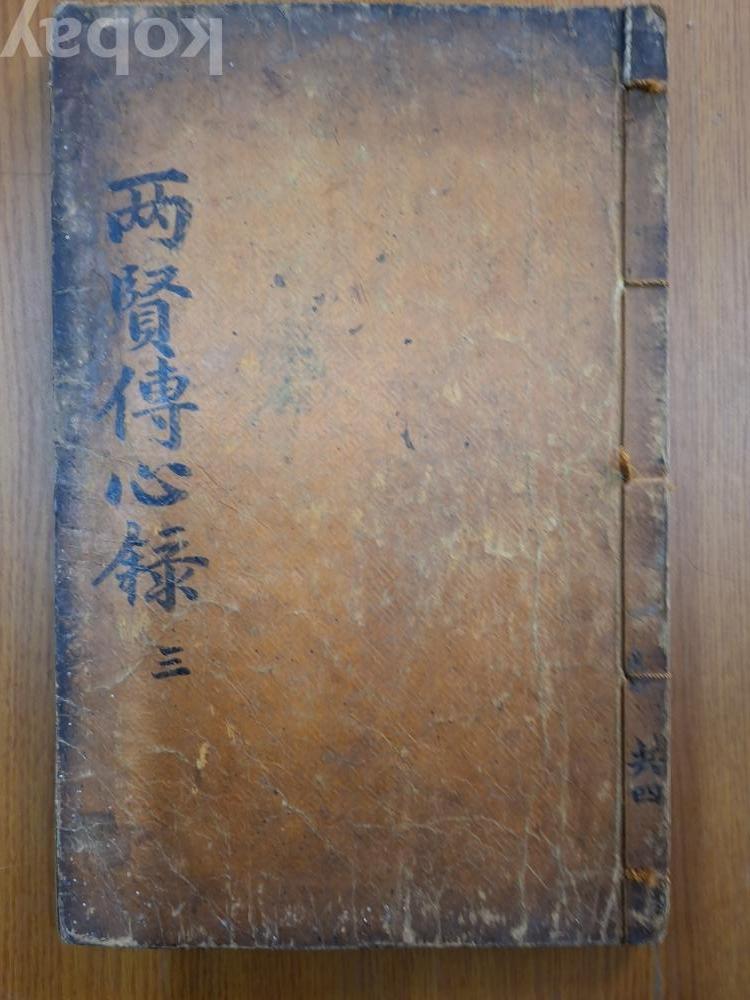 kobay
両賢傳心録 三
共四